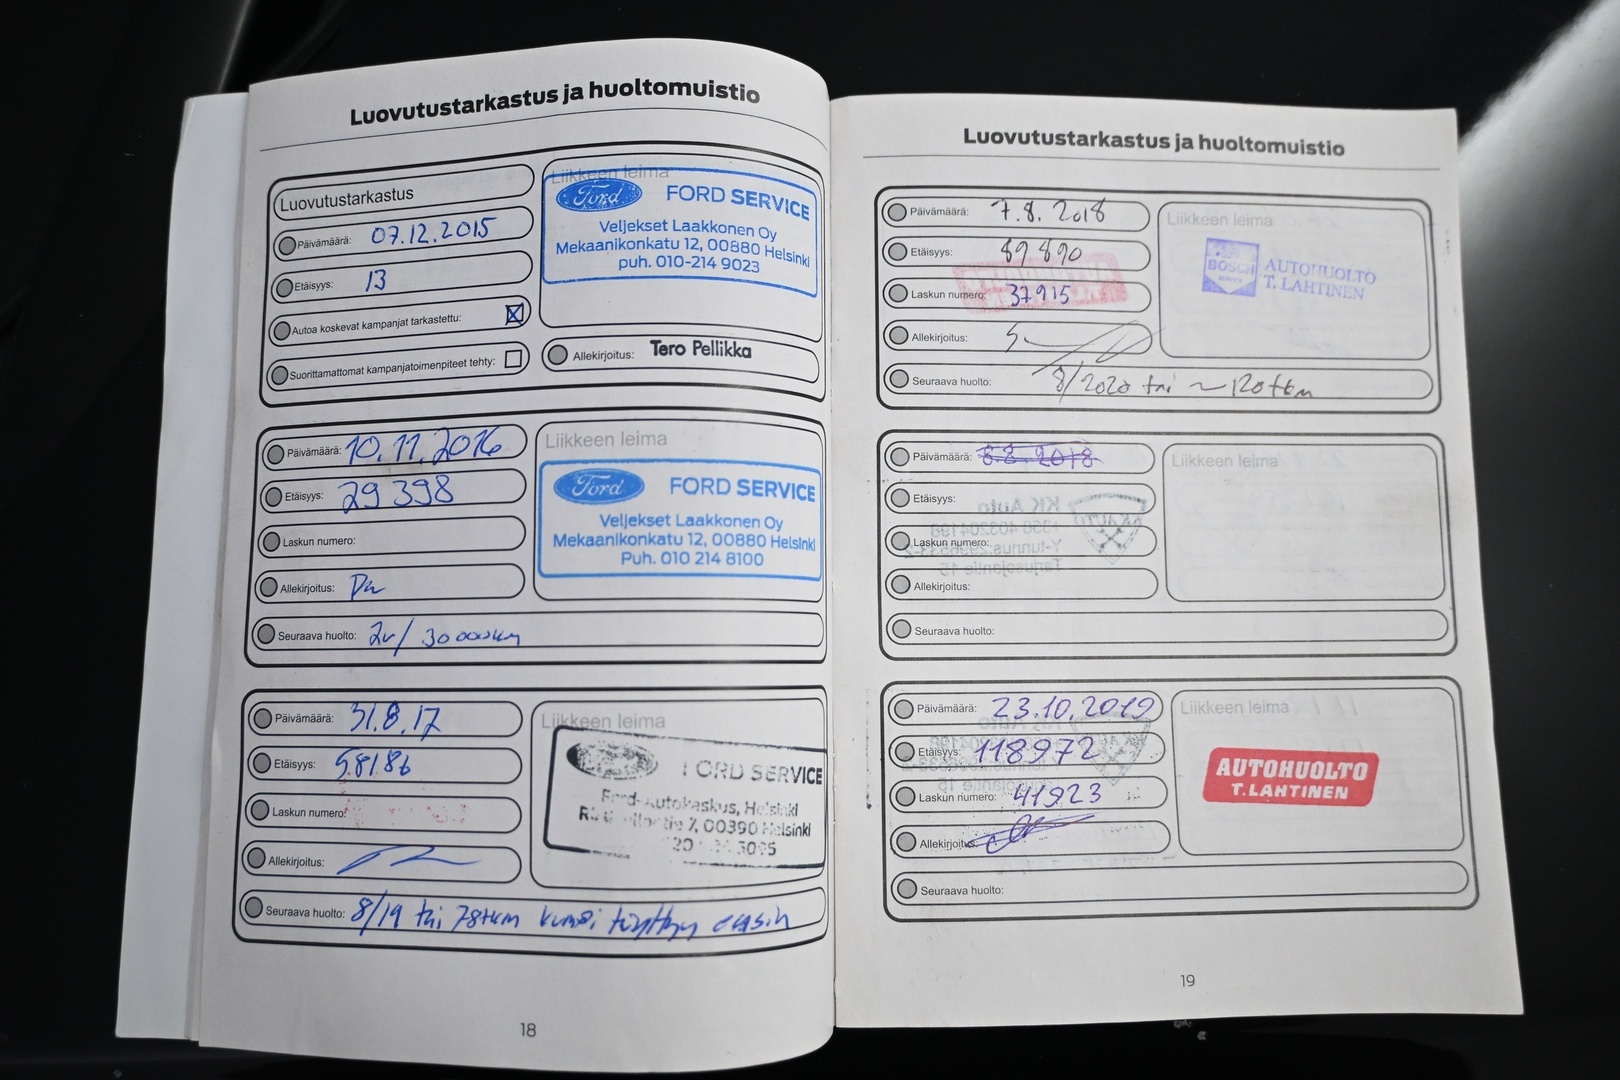 Luovutustarkastus ja huoltomuistio
Luovutustarkastus
Päivämäärä: 07.12.2015
Etäisyys: 13
Autoa koskevat kampanjat tarkastettu:
Suorittamattomat kampanjatoimenpiteet tehty:
Liikkeen leima
Ford FORD SERVICE
Veljekset Laakkonen Oy
Mekaanikonkatu 12, 00880 Helsinki
puh. 010-214 9023
Allekirjoitus: Tero Pellikka
Päivämäärä: 10.11.2016
Etäisyys: 29 398
Laskun numero:
Allekirjoitus:
Seuraava huolto: 2v/ 30000km
Liikkeen leima
Ford FORD SERVICE
Veljekset Laakkonen Oy
Mekaanikonkatu 12, 00880 Helsinki
Puh. 010 214 8100
Päivämäärä: 31.8.17
Etäisyys: 58186
Laskun numero:
Allekirjoitus:
Seuraava huolto: 8/19 tai 78tkm kumpi täyttyy ensin
Liikkeen leima
FORD SERVICE
Ford-Autokeskus, Helsinki
7, 00390 Helsinki
18
Luovutustarkastus ja huoltomuistio
Päivämäärä: 7.8.2018
Etäisyys: 89890
Laskun numero: 37915
Allekirjoitus:
Seuraava huolto: 8/2020 tai ~120tkm
Liikkeen leima
BOSCH
SERVICE
AUTOHUOLTO
T. LAHTINEN
Päivämäärä:
Etäisyys:
Laskun numero:
Allekirjoitus:
Seuraava huolto:
Liikkeen leima
Päivämäärä: 23.10.2019
Etäisyys: 118972
Laskun numero: 41923
Allekirjoitus:
Seuraava huolto:
Liikkeen leima
AUTOHUOLTO
T.LAHTINEN
19